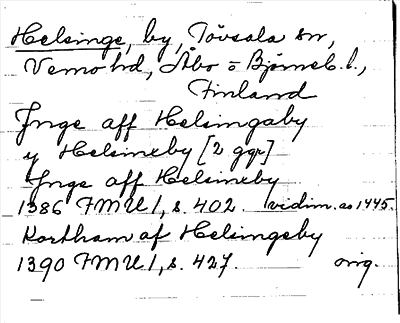 Helsinge, by, Tövsala sn,
Vemo hd, Åbo o Björneb. l.,
Finland
Jnge aff Helsingaby
y Helsineby [2 ggr]
Jnge aff Helsineby
1386 FMU 1, s. 402. vidim. as 1445.
Kortham af Helsingeby
1390 FMU 1, s. 427. orig.